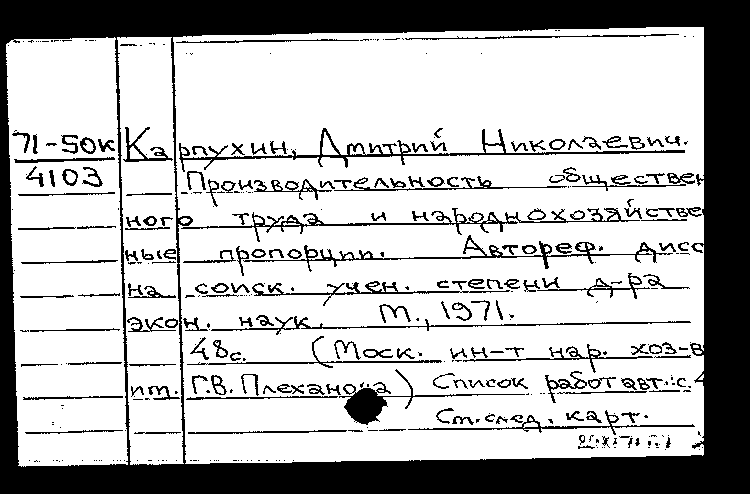 71-50к Карпухин, Дмитрий Николаевич.
4103 Производительность обществен
ного труда и народнохозяйстве
ные пропорции. Автореф. дисс
на соиск. учен. степени д-ра
экон. наук. М., 1971.
48с. (Моск. ин-т нар. хоз-в
им. Г.В. Плеханова) Список работ авт.: с. 4
См. след. карт.